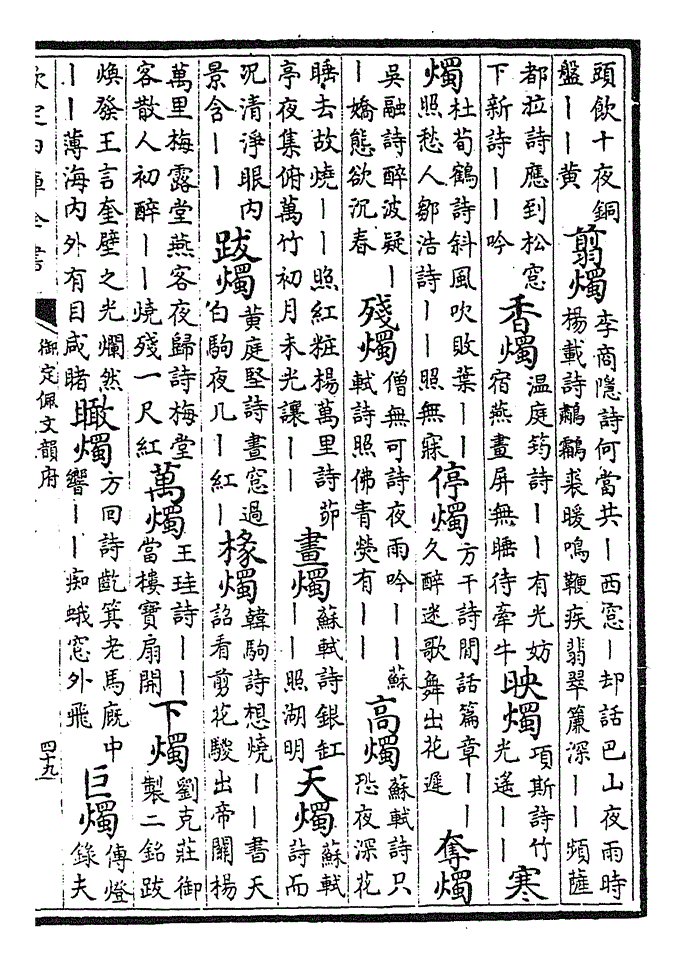 頭飲十夜銅
盤丨丨黄
翦燭
李商隱詩何當共丨西窓丨却話巴山夜雨時
楊載詩鷫鸘裘暖鳴鞭疾翡翠簾深丨丨頻薩
都拉詩應到松窓
下新詩丨丨吟
香燭
溫庭筠詩丨丨有光妨
宿燕畫屏無睡待牽牛
映燭
項斯詩竹
光遙丨丨
寒
燭
杜荀鶴詩斜風吹敗葉丨丨
照愁人鄒浩詩丨丨照無寐
停燭
方干詩閒話篇章丨丨
久醉迷歌舞出花遲
奪燭
吳融詩醉波疑丨
丨嬌態欲沉春
殘燭
僧無可詩夜雨吟丨丨蘇
軾詩照佛青熒有丨丨
高燭
蘇軾詩只
恐夜深花
睡去故燒丨丨照紅粧楊萬里詩茆
亭夜集俯萬竹初月未光讓丨丨
畫燭
蘇軾詩銀缸
丨丨照湖明
天燭
蘇軾
詩而
況清淨眼内
景含丨丨
跋燭
黄庭堅詩畫窓過
白駒夜几丨紅丨
椽燭
韓駒詩想燒丨丨書天
詔看剪花駿出帝閑楊
萬里梅露堂燕客夜歸詩梅堂
客散人初醉丨丨燒殘一尺紅
萬燭
王珪詩丨丨
當樓寶扇開
下燭
劉克莊御
製二銘跋
煥發王言奎壁之光爛然
丨丨薄海内外有目咸睹
瞰燭
方回詩齕箕老馬廐中
響丨丨痴蛾窓外飛
巨燭
傳燈
錄夫
欽定四庫全書
御定佩文韻府
四十九